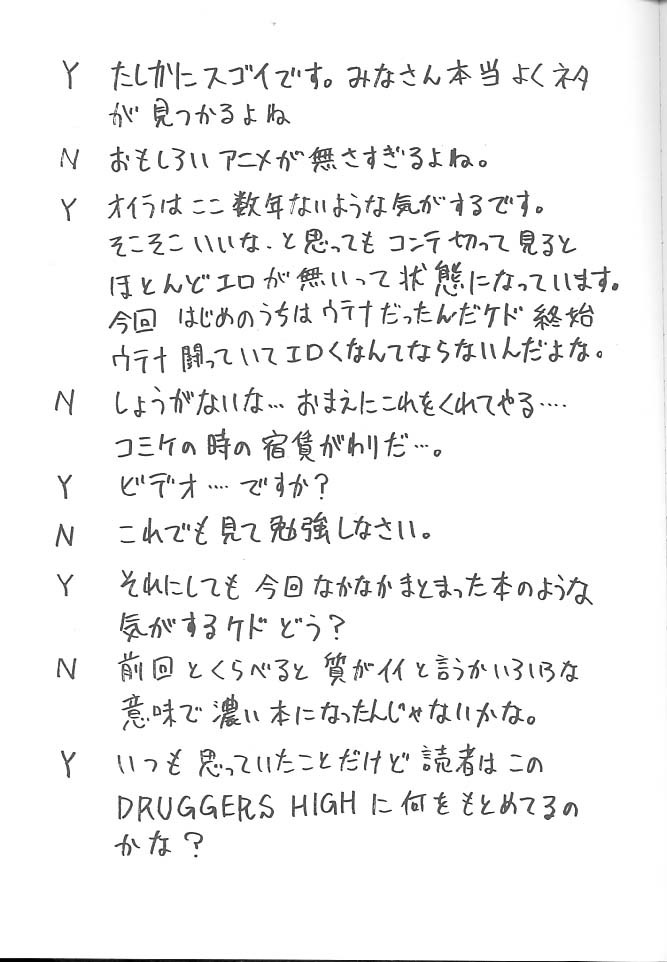 Y たしかにスゴイです。みなさん本当よくネタ
が見つかるよね
N おもしろいアニメが無さすぎるよね。
Y オイラはここ数年ないような気がするです。
そこそこいいな、と思ってもコンテ切って見ると
ほとんどエロが無いって状態になっています。
今回 はじめのうちはウテナだったんだケド 終始
ウテナ闘っていてエロくなんてならないんだよな。
N しょうがないな… おまえにこれをくれてやる‥‥
コミケの時の宿賃がわりだ…。
Y ビデオ…ですか？
N これでも見て勉強しなさい。
Y それにしても今回なかなかまとまった本のような
気がするケドどう？
N 前回とくらべると質がイイと言うかいろいろな
意味で濃い本になったんじゃないかな。
Y いつも思っていたことだけど読者はこの
DRUGGERS HIGHに何をもとめてるの
かな？